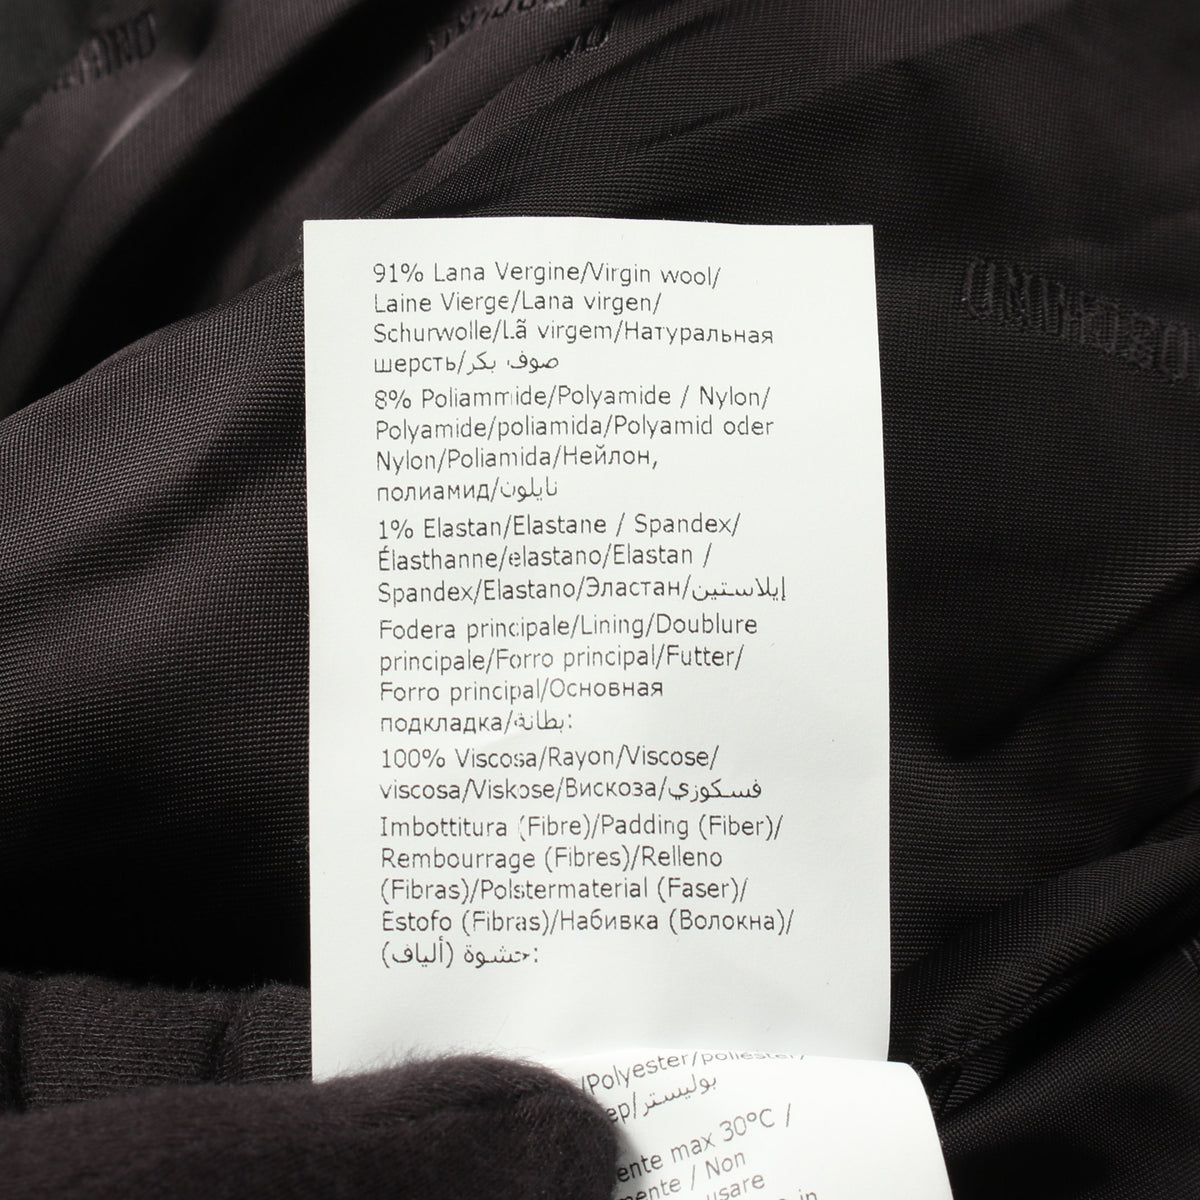 91% Lana Vergine/Virgin wool/
Laine Vierge/Lana virgen/
Schurwolle/Lã virgem/Натуральная
шерсть/صوف بكر
8% Poliammide/Polyamide / Nylon/
Polyamide/poliamida/Polyamid oder
Nylon/Poliamida/Нейлон,
полиамид/نايلون
1% Elastan/Elastane / Spandex/
Élasthanne/elastano/Elastan /
Spandex/Elastano/Эластан/إيلاستين
Fodera principale/Lining/Doublure
principale/Forro principal/Futter/
Forro principal/Основная
подкладка/بطانة:
100% Viscosa/Rayon/Viscose/
viscosa/Viskose/Вискоза/فسكوزي
Imbottitura (Fibre)/Padding (Fiber)/
Rembourrage (Fibres)/Relleno
(Fibras)/Polstermaterial (Faser)/
Estofo (Fibras)/Набивка (Волокна)/
حشوة (ألياف):
/Polyester/poliester/
ер/بوليستر
ente max 30°C /
mente / Non
usare
in